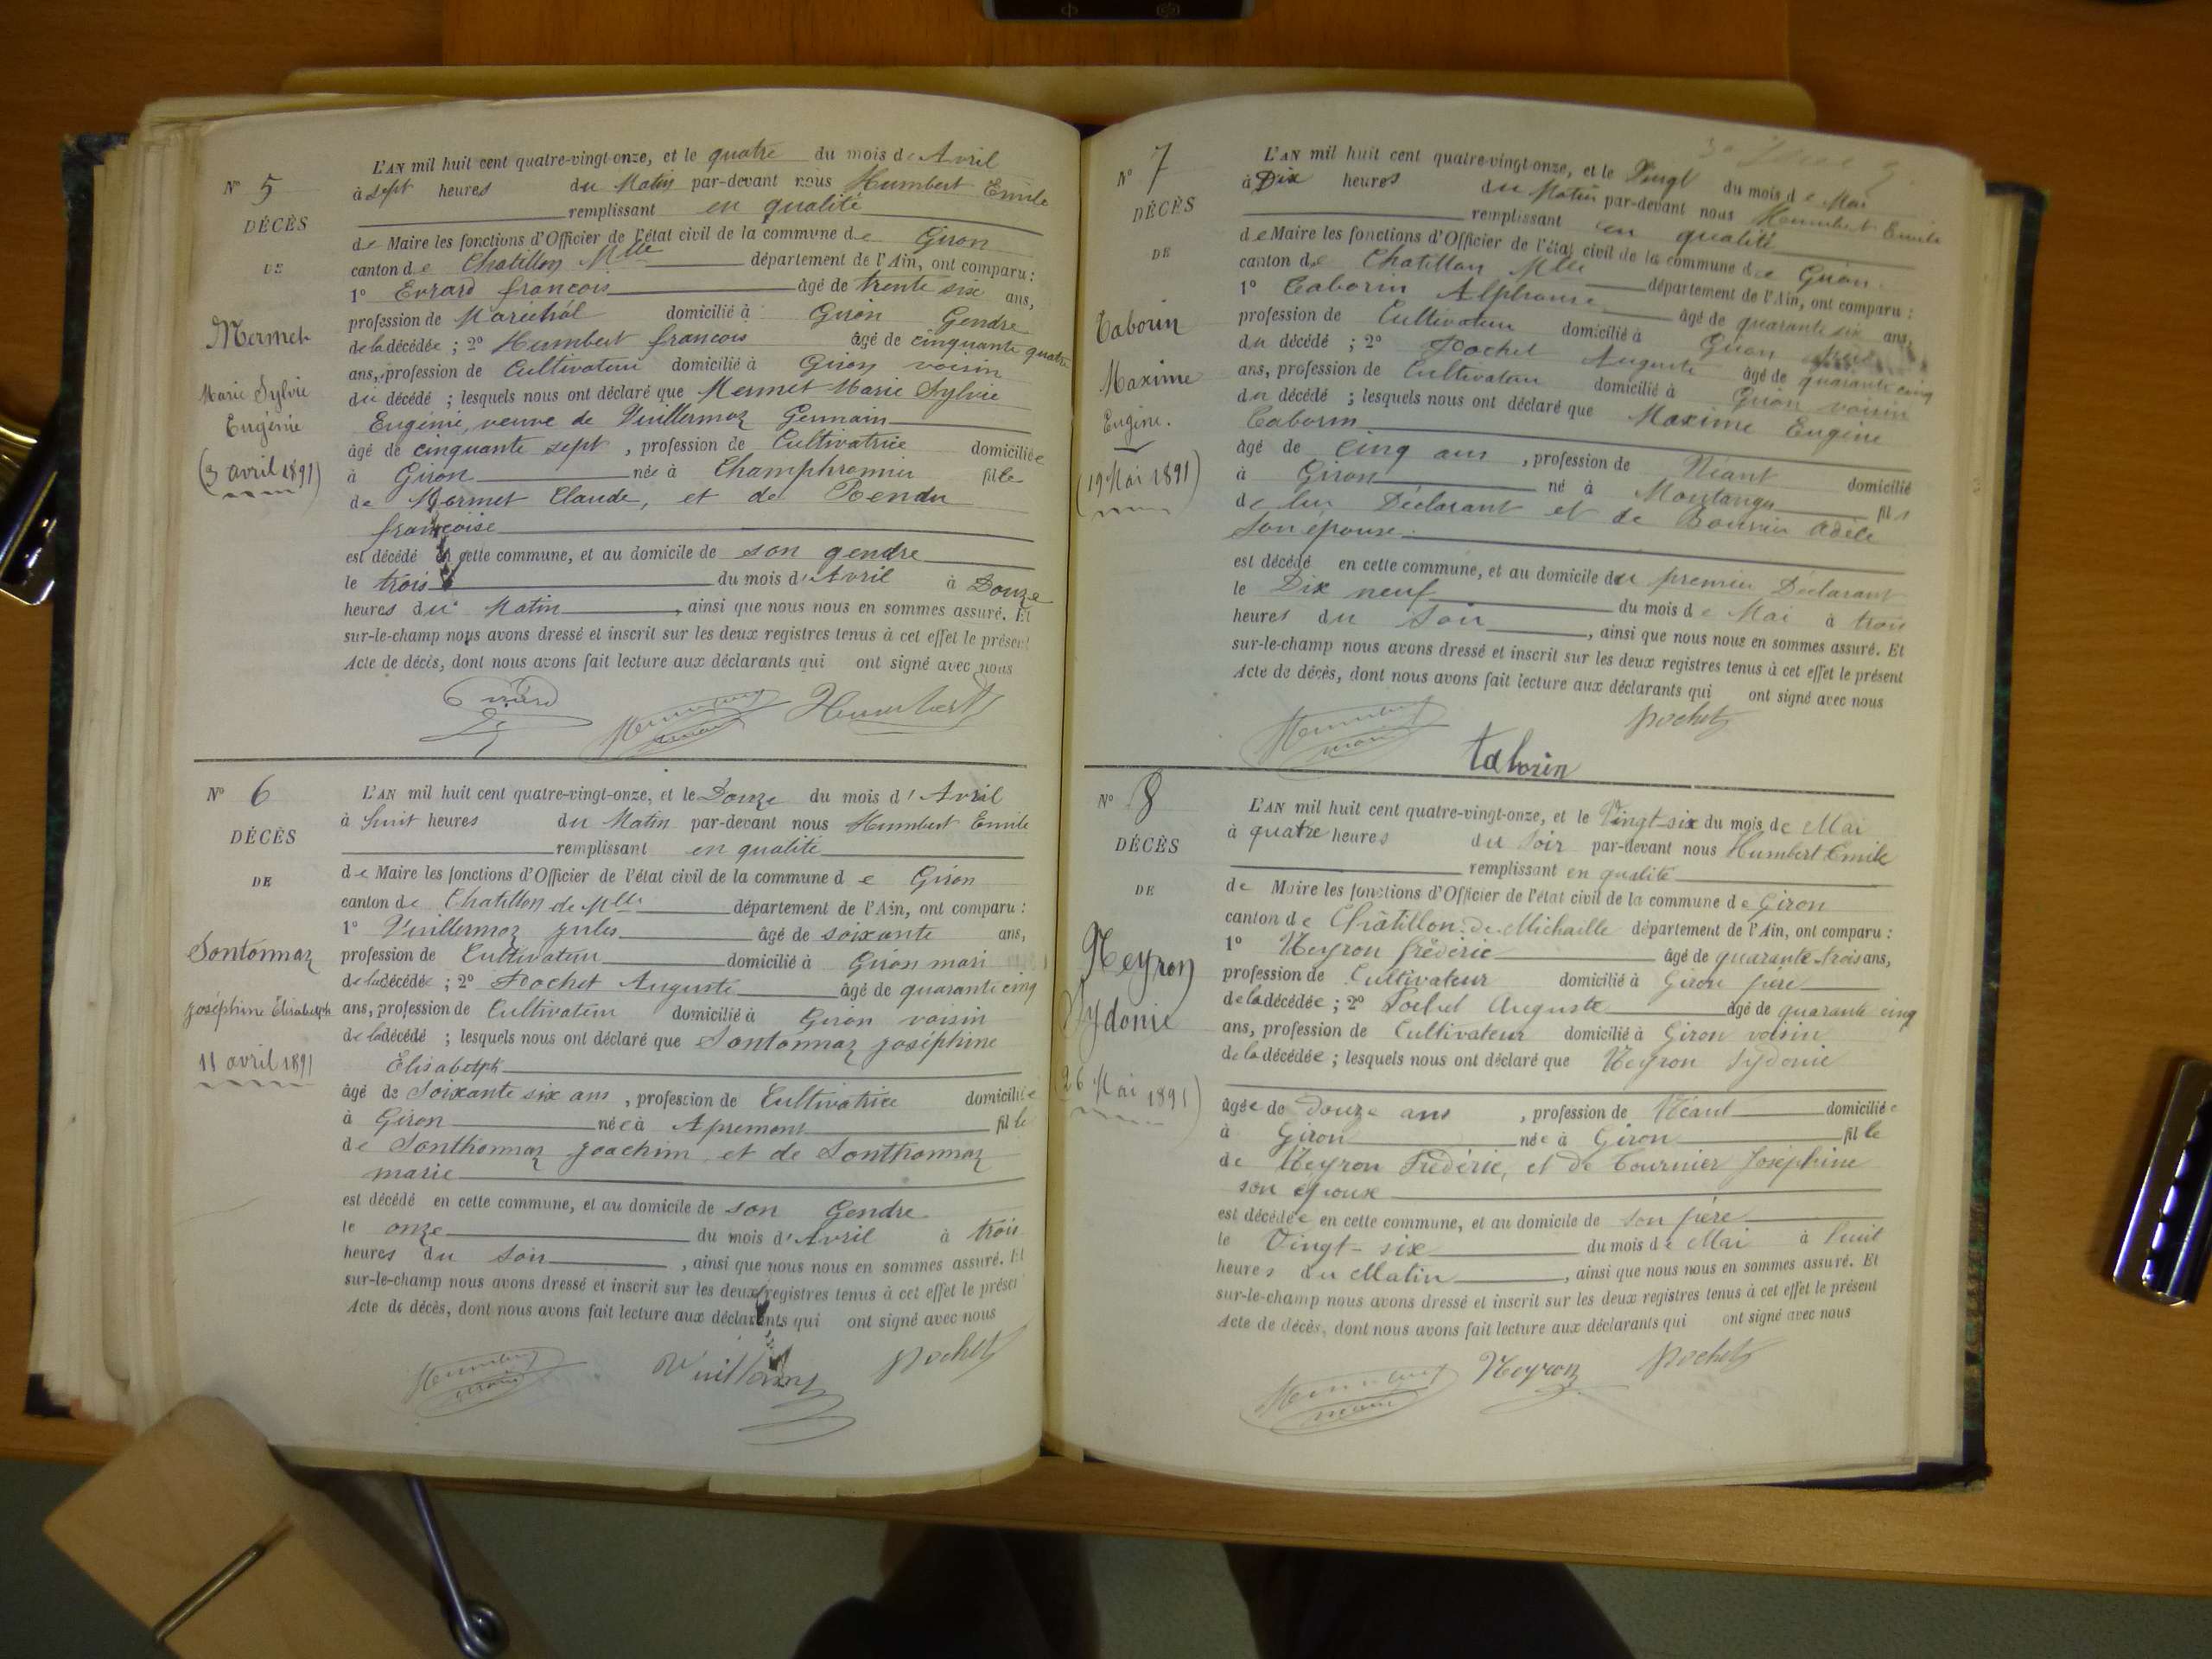 N° 5
DÉCÈS
DE
Mermet
Marie Sylvie
Eugénie
(3 avril 1891)
L'AN mil huit cent quatre-vingt-onze, et le quatre du mois d' Avril
à sept heures du Matin par-devant nous Humbert Emile
remplissant en qualité
de Maire les fonctions d'Officier de l'état civil de la commune de Giron
canton de Chatillon Mlle département de l'Ain, ont comparu :
1° Evrard françois âgé de trente six ans,
profession de Maréchal domicilié à Giron Gendre
de la décédée ; 2° Humbert françois âgé de cinquante quatre
ans, profession de Cultivateur domicilié à Giron voisin
du décédé ; lesquels nous ont déclaré que Mermet Marie Sylvie
Eugénie, veuve de Vuillermoz Germain
âgé de cinquante sept , profession de Cultivatrice domiciliée
à Giron née à Champfromier fille
de Mermet Claude, et de Rendu
françoise
est décédé en cette commune, et au domicile de son gendre
le trois du mois d' Avril à Douze
heures du Matin , ainsi que nous nous en sommes assuré. Et
sur-le-champ nous avons dressé et inscrit sur les deux registres tenus à cet effet le présent
Acte de décès, dont nous avons fait lecture aux déclarants qui ont signé avec nous
Evrard Humbert maire Humbert
N° 6
DÉCÈS
DE
Sontonnaz
joséphine Elisabelph
11 avril 1891
L'AN mil huit cent quatre-vingt-onze, et le Douze du mois d' Avril
à huit heures du Matin par-devant nous Humbert Emile
remplissant en qualité
de Maire les fonctions d'Officier de l'état civil de la commune de Giron
canton de Chatillon de Mlle département de l'Ain, ont comparu :
1° Vuillermoz jules âgé de soixante ans,
profession de Cultivateur domicilié à Giron mari
de la décédée ; 2° Pochet Auguste âgé de quarante cinq
ans, profession de Cultivateur domicilié à Giron voisin
de la décédé ; lesquels nous ont déclaré que Sontonnaz joséphine
Elisabelph
âgé de Soixante six ans , profession de Cultivatrice domiciliée
à Giron née à Apremont fille
de Sonthonnaz joachim et de Sonthonnaz
marie
est décédé en cette commune, et au domicile de son Gendre
le onze du mois d' Avril à trois
heures du Soir , ainsi que nous nous en sommes assuré. Et
sur-le-champ nous avons dressé et inscrit sur les deux registres tenus à cet effet le présent
Acte de décès, dont nous avons fait lecture aux déclarants qui ont signé avec nous
Humbert maire Vuillermoz Pochet
N° 7
DÉCÈS
DE
Taborin
Maxime
Eugène.
(19 Mai 1891)
L'AN mil huit cent quatre-vingt-onze, et le Vingt du mois de Mai
à Dix heures du Matin par-devant nous Humbert Emile
remplissant en qualité
de Maire les fonctions d'Officier de l'état civil de la commune de Giron
canton de Chatillon Mlle département de l'Ain, ont comparu :
1° Taborin Alphonse âgé de quarante six ans,
profession de Cultivateur domicilié à Giron
du décédé ; 2° Pochet Auguste âgé de quarante cinq
ans, profession de Cultivateur domicilié à Giron voisin
du décédé ; lesquels nous ont déclaré que Maxime Eugène
Taborin
âgé de Cinq ans , profession de Néant domicilié
à Giron né à Montanges fils
de lui Déclarant et de Bouvier Adèle
Son épouse.
est décédé en cette commune, et au domicile du premier Déclarant
le Dix neuf du mois de Mai à trois
heures du Soir , ainsi que nous nous en sommes assuré. Et
sur-le-champ nous avons dressé et inscrit sur les deux registres tenus à cet effet le présent
Acte de décès, dont nous avons fait lecture aux déclarants qui ont signé avec nous
Humbert maire Pochet
taborin
N° 8
DÉCÈS
DE
Neyron
Sydonie
(26 Mai 1891)
L'AN mil huit cent quatre-vingt-onze, et le Vingt-six du mois de Mai
à quatre heures du Soir par-devant nous Humbert Emile
remplissant en qualité
de Maire les fonctions d'Officier de l'état civil de la commune de Giron
canton de Châtillon-de-Michaille département de l'Ain, ont comparu :
1° Neyron frédéric âgé de quarante-trois ans,
profession de Cultivateur domicilié à Giron père
de la décédée ; 2° Pochet Auguste âgé de quarante cinq
ans, profession de Cultivateur domicilié à Giron voisin
de la décédée ; lesquels nous ont déclaré que Neyron Sydonie
âgée de Douze ans , profession de Néant domiciliée
à Giron née à Giron fille
de Neyron Frédéric, et de Tournier Joséphine
son épouse
est décédée en cette commune, et au domicile de son père
le Vingt-six du mois de Mai à huit
heures du Matin , ainsi que nous nous en sommes assuré. Et
sur-le-champ nous avons dressé et inscrit sur les deux registres tenus à cet effet le présent
Acte de décès, dont nous avons fait lecture aux déclarants qui ont signé avec nous
Humbert maire Neyron Pochet